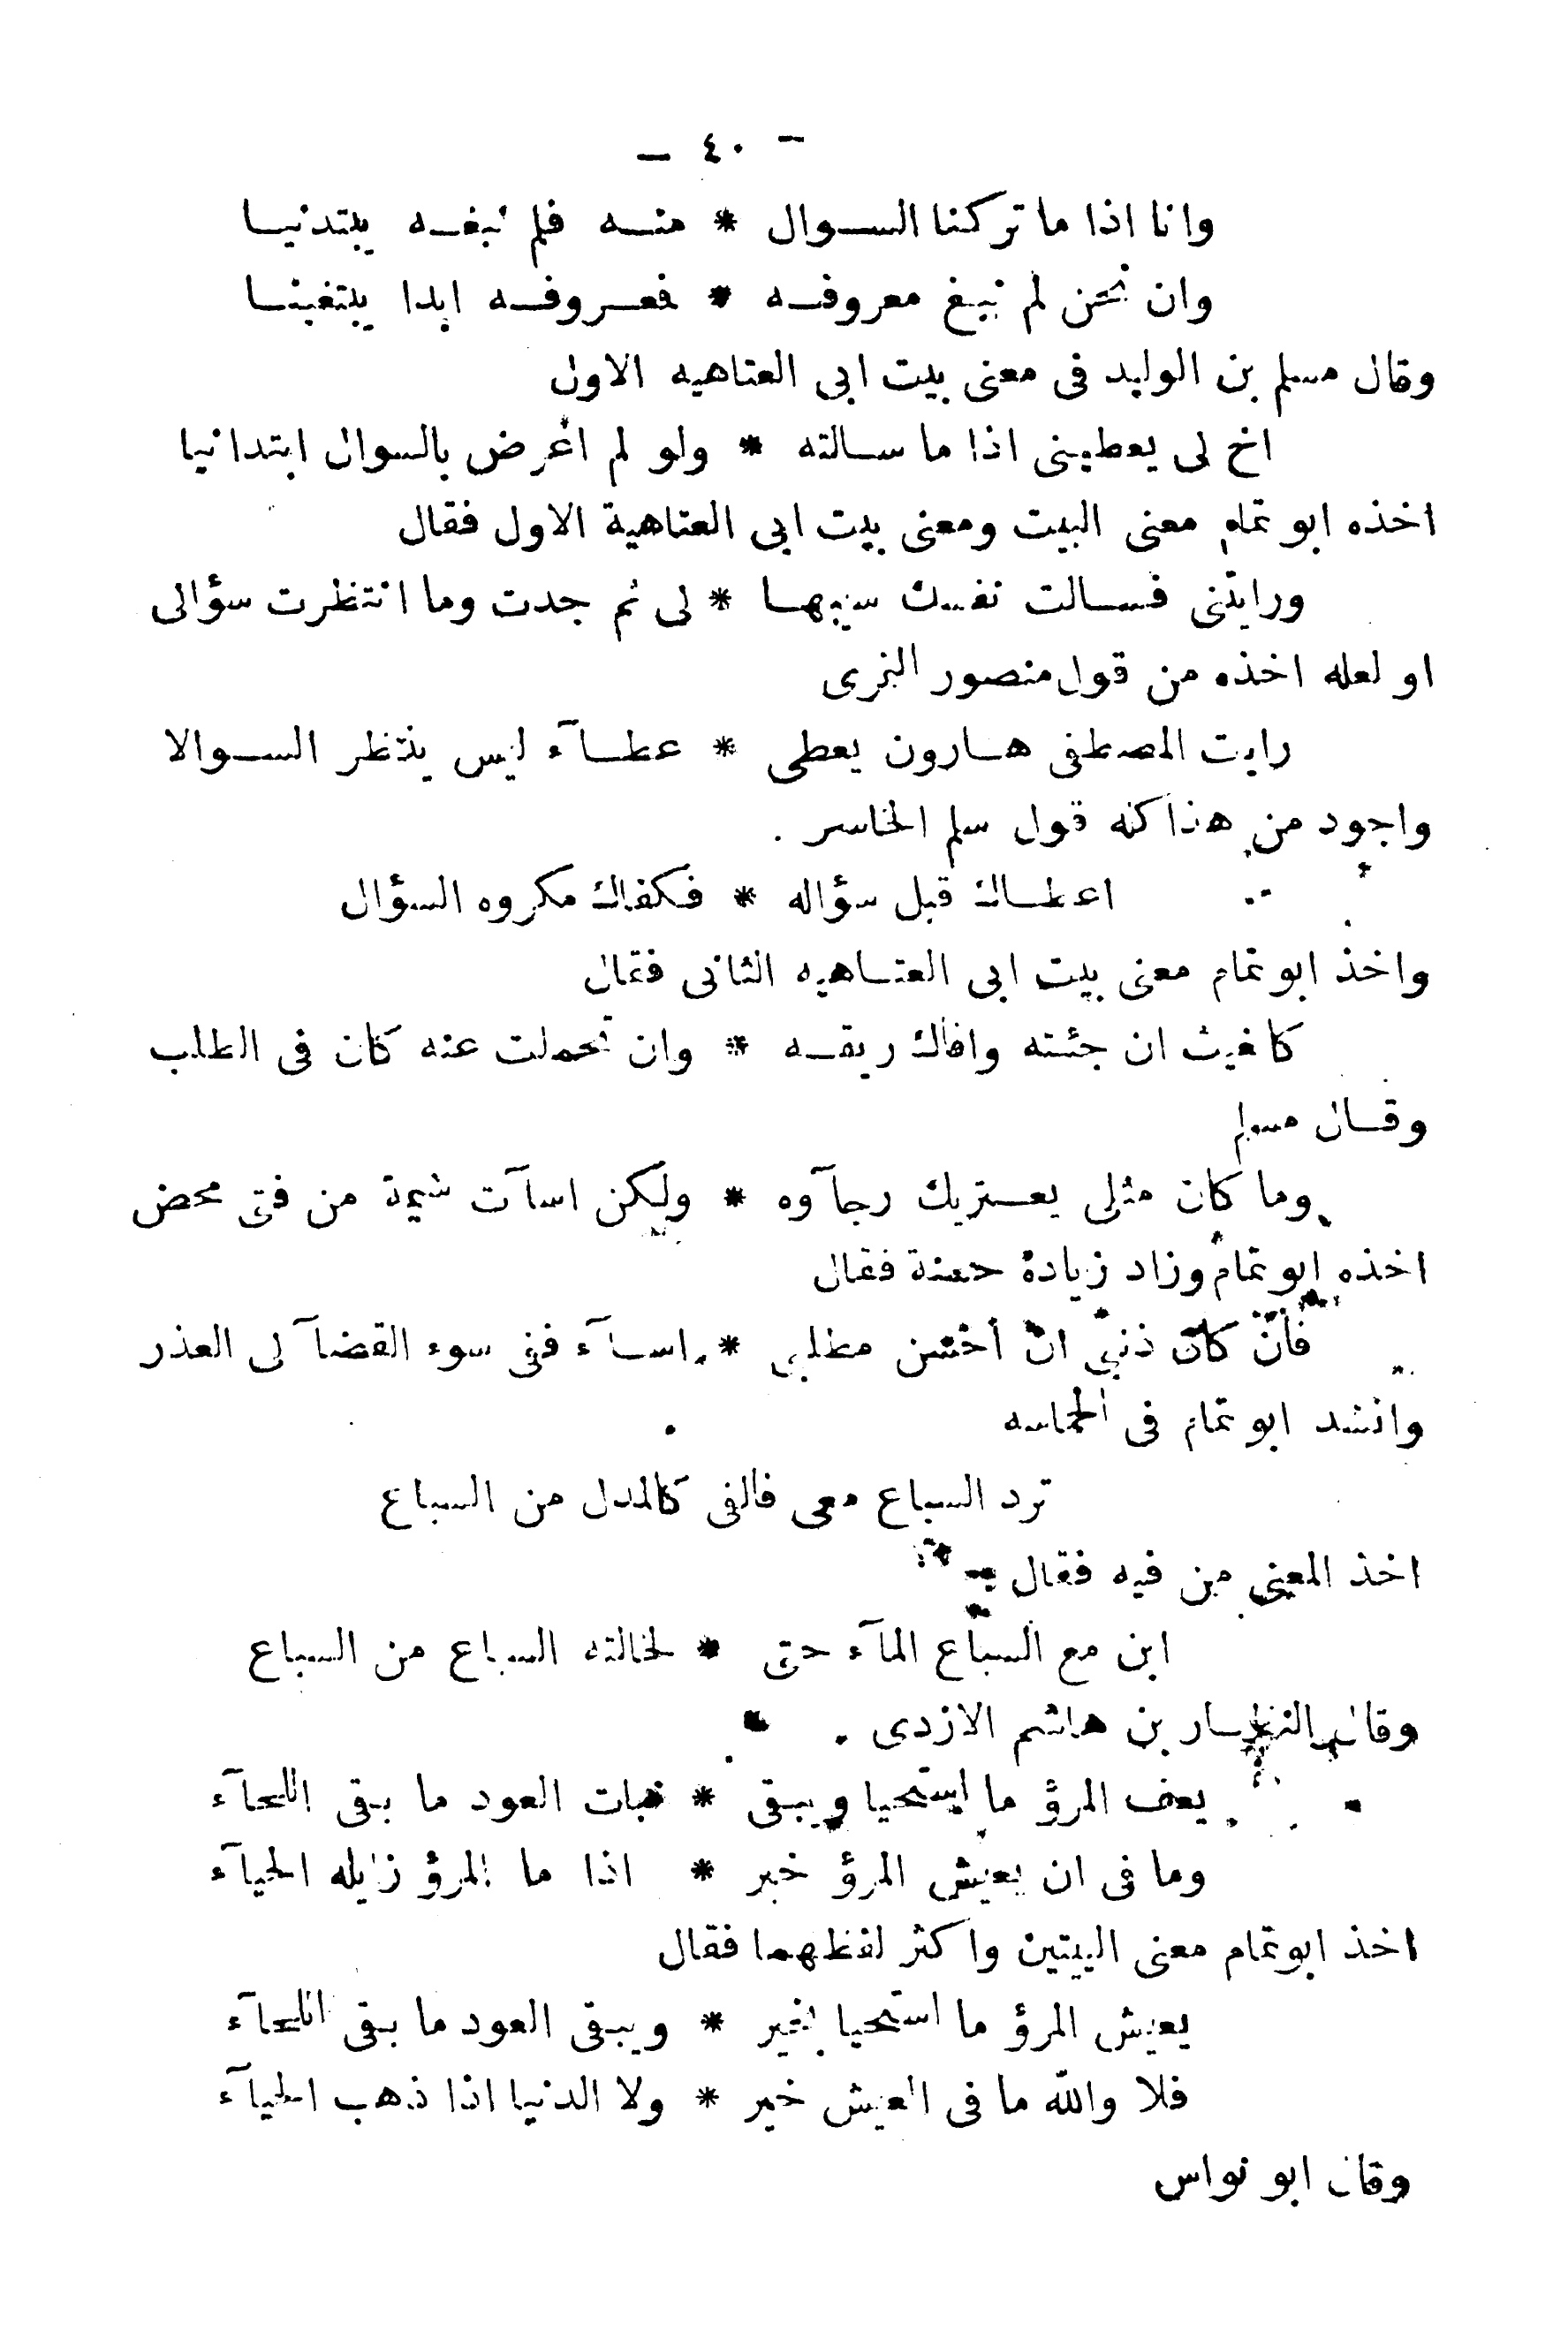 — ٤٠ —
وانا اذا ما تركنا السوال * منه فلم نبغه يبتدنيا
وان نحن لم نبغ معروفه * فمعروفه ابدا يبتغينا
وقال مسلم بن الوليد فى معنى بيت ابى العتاهيه الاول
اخ لى يعطينى اذا ما سالته * ولو لم اعرض بالسوال ابتدانيا
اخذه ابو تمام معنى البيت ومعنى بيت ابى العتاهية الاول فقال
ورايتنى فسالت نفسك سيبها * لى ثم جدت وما انتظرت سؤالى
او لعله اخذه من قول منصور النمرى
رايت المصطفى هارون يعطى * عطآء ليس ينتظر السوالا
واجود من هذا كله قول سلم الخاسر .
اعطاك قبل سؤاله * فكفاك مكروه السؤال
واخذ ابو تمام معنى بيت ابى العتاهيه الثانى فقال
كالغيث ان جئته وافاك ريقه * وان تحملت عنه كان فى الطلب
وقال مسلم
وما كان مثلى يعتريك رجآوه * ولكن اسآت شيمة من فتى محض
اخذه ابو تمام وزاد زيادة حسنة فقال
فأن كان ذنبى ان أحسن مطلبى * اسآء ففى سوء القضآ لى العذر
وانشد ابو تمام فى الحماسه
ترد السباع معى فالفى كالمدل من السباع
اخذ المعنى من فيه فقال
ابن مع السباع المآء حتى * لخالته السباع من السباع
وقال النظار بن هاشم الازدى .
يعف المرؤ ما استحيا ويبقى * نبات العود ما بقى اللحآء
وما فى ان يعيش المرؤ خير * اذا ما المرؤ زايله الحيآء
اخذ ابو تمام معنى البيتين واكثر لفظهما فقال
يعيش المرؤ ما استحيا بخير * ويبقى العود ما بقى اللحآء
فلا والله ما فى العيش خير * ولا الدنيا اذا ذهب الحيآء
وقال ابو نواس